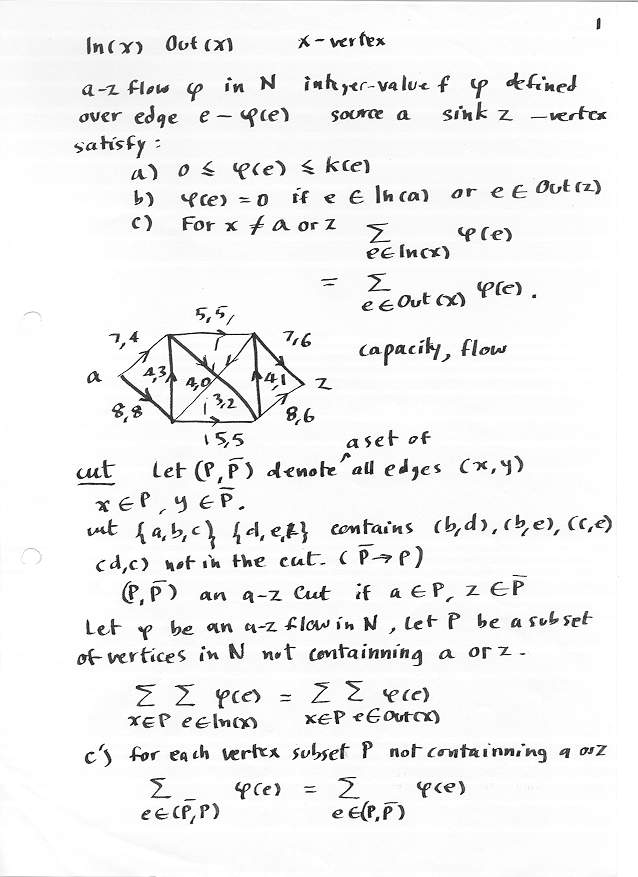 1
In(x) Out(x) x-vertex
a-z flow φ in N integer-value f φ defined
over edge e – φ(e) source a sink z – vertex
satisfy :
a) 0 ≤ φ(e) ≤ k(e)
b) φ(e) = 0 if e ∈ In(a) or e ∈ Out(z)
c) For x ≠ a or z Σ φ(e)
e∈In(x)
= Σ φ(e).
e∈Out(x)
5,5
7,4 7,6
capacity, flow
a 4,3 4,0 4,1 z
3,2
8,8 8,6
15,5
a set of
cut Let (P, P̄) denote ^ all edges (x,y)
x ∈ P, y ∈ P̄.
cut {a,b,c} {d,e,z} contains (b,d), (b,e), (c,e)
(d,c) not in the cut. (P̄→P)
(P, P̄) an a-z cut if a ∈ P, z ∈ P̄
Let φ be an a-z flow in N, let P be a subset
of vertices in N not containning a or z.
Σ Σ φ(e) = Σ Σ φ(e)
x∈P e∈In(x) x∈P e∈Out(x)
c') for each vertex subset P not containning a or z
Σ φ(e) = Σ φ(e)
e∈(P̄,P) e∈(P,P̄)